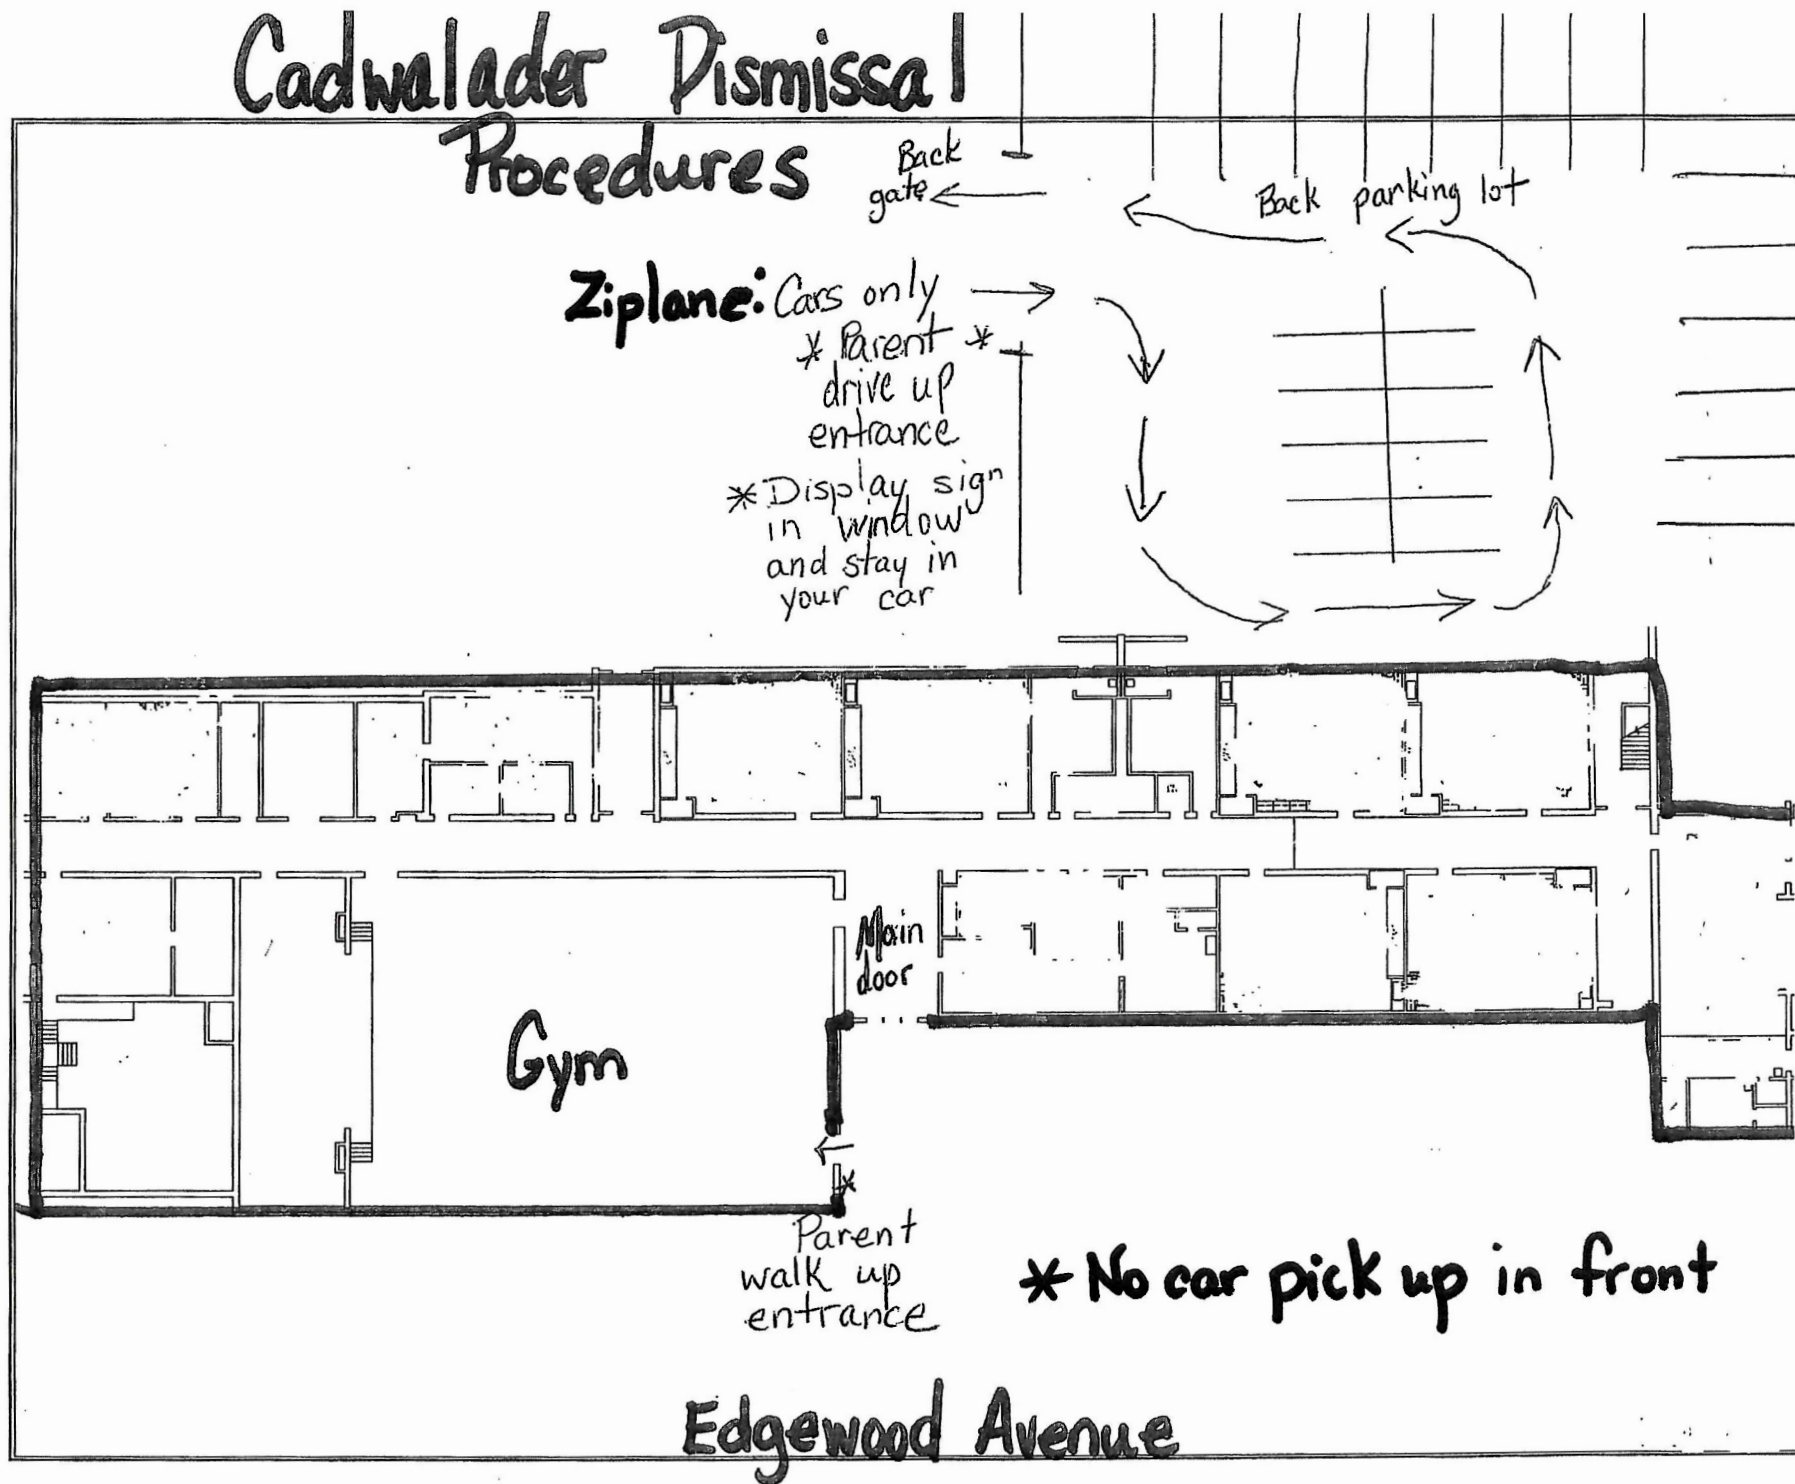 Cadwalader Dismissal
Procedures
Back
gate
Back parking lot
Ziplane: Cars only
* Parent *
drive up
entrance
* Display sign
in window
and stay in
your car
Main
door
Gym
*
Parent
walk up
entrance
* No car pick up in front
Edgewood Avenue